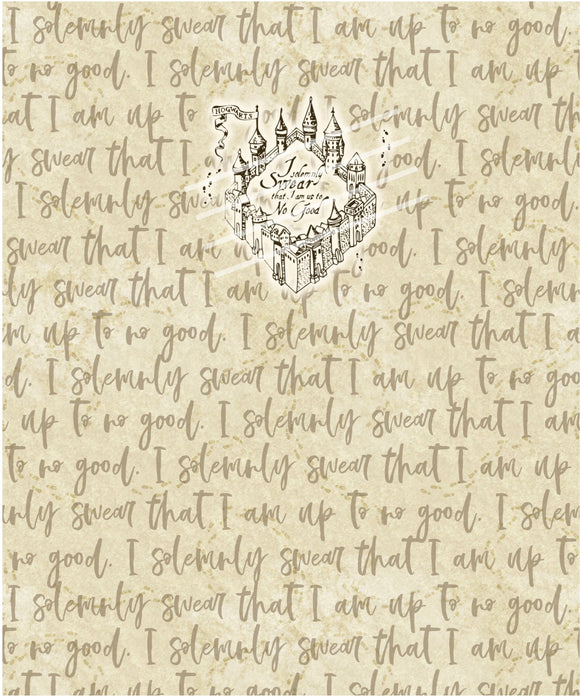 I solemnly swear that I am up to no good.
to no good. I solemnly swear that I am up
at I am up to
HOGWARTS
I solemnly
I solemnly
Swear
that I am up to
No Good
y swear that I
ood. I
I solemnly
up to no good.
swear that I am
ood. I solemnly
y swear that I am to no good. I solemn
am up to no good. I solemnly swear that I a
d. I solemnly swear that I am up to no goo
up to no good. I solemnly swear that I am
to no good. I solemnly swear that I am up
nly swear that I am up to no good. I solem
no good. I solemnly swear that I am up to
I solemnly swear that I am up to no good.
to no good. I solemnly swear that I am up
at I am up to no good. I solemnly swear